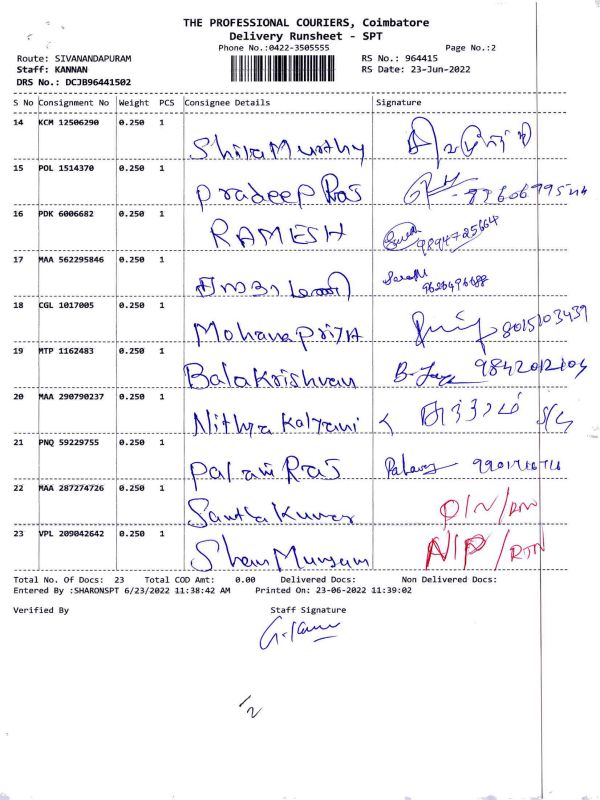 THE PROFESSIONAL COURIERS, Coimbatore
Delivery Runsheet - SPT
Phone No.:0422-3505555 Page No.:2
Route: SIVANANDAPURAM RS No.: 964415
Staff: KANNAN RS Date: 23-Jun-2022
DRS No.: DCJB96441502
S No Consignment No Weight PCS Consignee Details Signature
14 KCM 12506290 0.250 1
Shiva Murthy
15 POL 1514370 0.250 1
Pradeep Raj
16 PDK 6006682 0.250 1
RAMESH 9894725664
17 MAA 562295846 0.250 1
9626496688
18 CGL 1017005 0.250 1
Mohanapriya 8015103439
19 MTP 1162483 0.250 1
Balakrishnan
20 MAA 290790237 0.250 1
Nithya Kalyani
21 PNQ 59229755 0.250 1
Palani Raj
22 MAA 287274726 0.250 1
Santha Kumar
23 VPL 209042642 0.250 1
N/P / RTN
Total No. Of Docs: 23 Total COD Amt: 0.00 Delivered Docs: Non Delivered Docs:
Entered By :SHARONSPT 6/23/2022 11:38:42 AM Printed On: 23-06-2022 11:39:02
Verified By Staff Signature